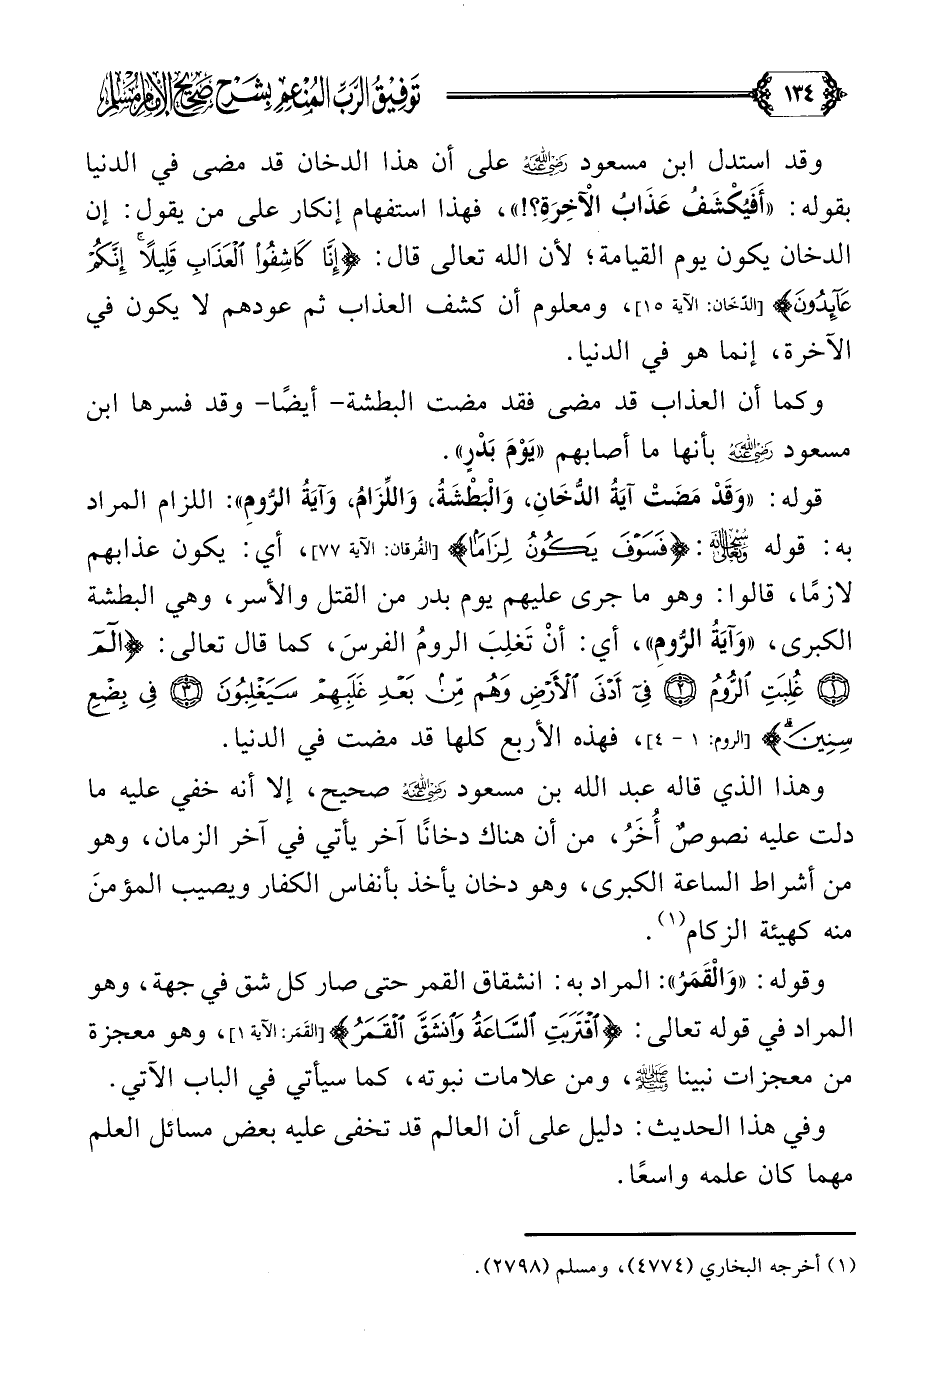 ١٣٤ توفيق الرب المنعم بشرح صحيح الإمام مسلم
وقد استدل ابن مسعود رضي الله عنه على أن هذا الدخان قد مضى في الدنيا
بقوله: «أَفَيُكْشَفُ عَذَابُ الْآخِرَةِ؟!»، فهذا استفهام إنكار على من يقول: إن
الدخان يكون يوم القيامة؛ لأن الله تعالى قال: ﴿إِنَّا كَاشِفُواْ ٱلْعَذَابِ قَلِيلًا ۚ إِنَّكُمْ
عَآئِدُونَ﴾ [الدّخان: الآية ١٥]، ومعلوم أن كشف العذاب ثم عودهم لا يكون في
الآخرة، إنما هو في الدنيا.
وكما أن العذاب قد مضى فقد مضت البطشة- أيضًا- وقد فسرها ابن
مسعود رضي الله عنه بأنها ما أصابهم «يَوْمَ بَدْرٍ».
قوله: «وَقَدْ مَضَتْ آيَةُ الدُّخَانِ، وَالْبَطْشَةُ، وَاللِّزَامُ، وَآيَةُ الرُّومِ»: اللزام المراد
به: قوله سبحانه وتعالى: ﴿فَسَوْفَ يَكُونُ لِزَامًا﴾ [الفُرقان: الآية ٧٧]، أي: يكون عذابهم
لازمًا، قالوا: وهو ما جرى عليهم يوم بدر من القتل والأسر، وهي البطشة
الكبرى، «وَآيَةُ الرُّومِ»، أي: أنْ تَغلِبَ الرومُ الفرسَ، كما قال تعالى: ﴿الٓمٓ
١ غُلِبَتِ ٱلرُّومُ ٢ فِىٓ أَدْنَى ٱلْأَرْضِ وَهُم مِّنۢ بَعْدِ غَلَبِهِمْ سَيَغْلِبُونَ ٣ فِى بِضْعِ
سِنِينَ ۗ﴾ [الروم: ١ - ٤]، فهذه الأربع كلها قد مضت في الدنيا.
وهذا الذي قاله عبد الله بن مسعود رضي الله عنه صحيح، إلا أنه خفي عليه ما
دلت عليه نصوصٌ أُخَرُ، من أن هناك دخانًا آخر يأتي في آخر الزمان، وهو
من أشراط الساعة الكبرى، وهو دخان يأخذ بأنفاس الكفار ويصيب المؤمنَ
منه كهيئة الزكام(١).
وقوله: «وَالْقَمَرُ»: المراد به: انشقاق القمر حتى صار كل شق في جهة، وهو
المراد في قوله تعالى: ﴿ٱقْتَرَبَتِ ٱلسَّاعَةُ وَٱنشَقَّ ٱلْقَمَرُ﴾ [القَمَر: الآية ١]، وهو معجزة
من معجزات نبينا ﷺ، ومن علامات نبوته، كما سيأتي في الباب الآتي.
وفي هذا الحديث: دليل على أن العالم قد تخفى عليه بعض مسائل العلم
مهما كان علمه واسعًا.
(١) أخرجه البخاري (٤٧٧٤)، ومسلم (٢٧٩٨).